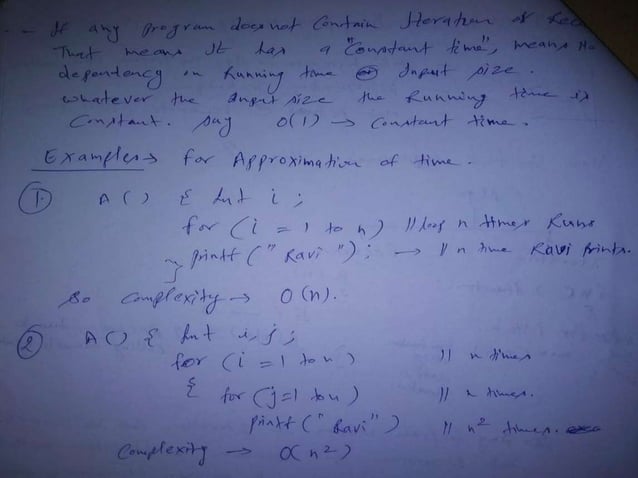 - If any program does not Contain Iteration or Rec
That means It has a "Constant time", means No
dependency on Running time or Input size.
whatever the Input size the Running time is
Constant. say O(1) → Constant time.
Examples → for Approximation of time.
1. A() { Int i;
for (i = 1 to n) // loop n times Runs
} printf ("Ravi"); → // n time Ravi prints.
So complexity → O(n).
2 A() { Int i, j;
for (i = 1 to n) // n times
{ for (j=1 to n) // n times.
printf ("Ravi") // n² times.
Complexity → O(n²)